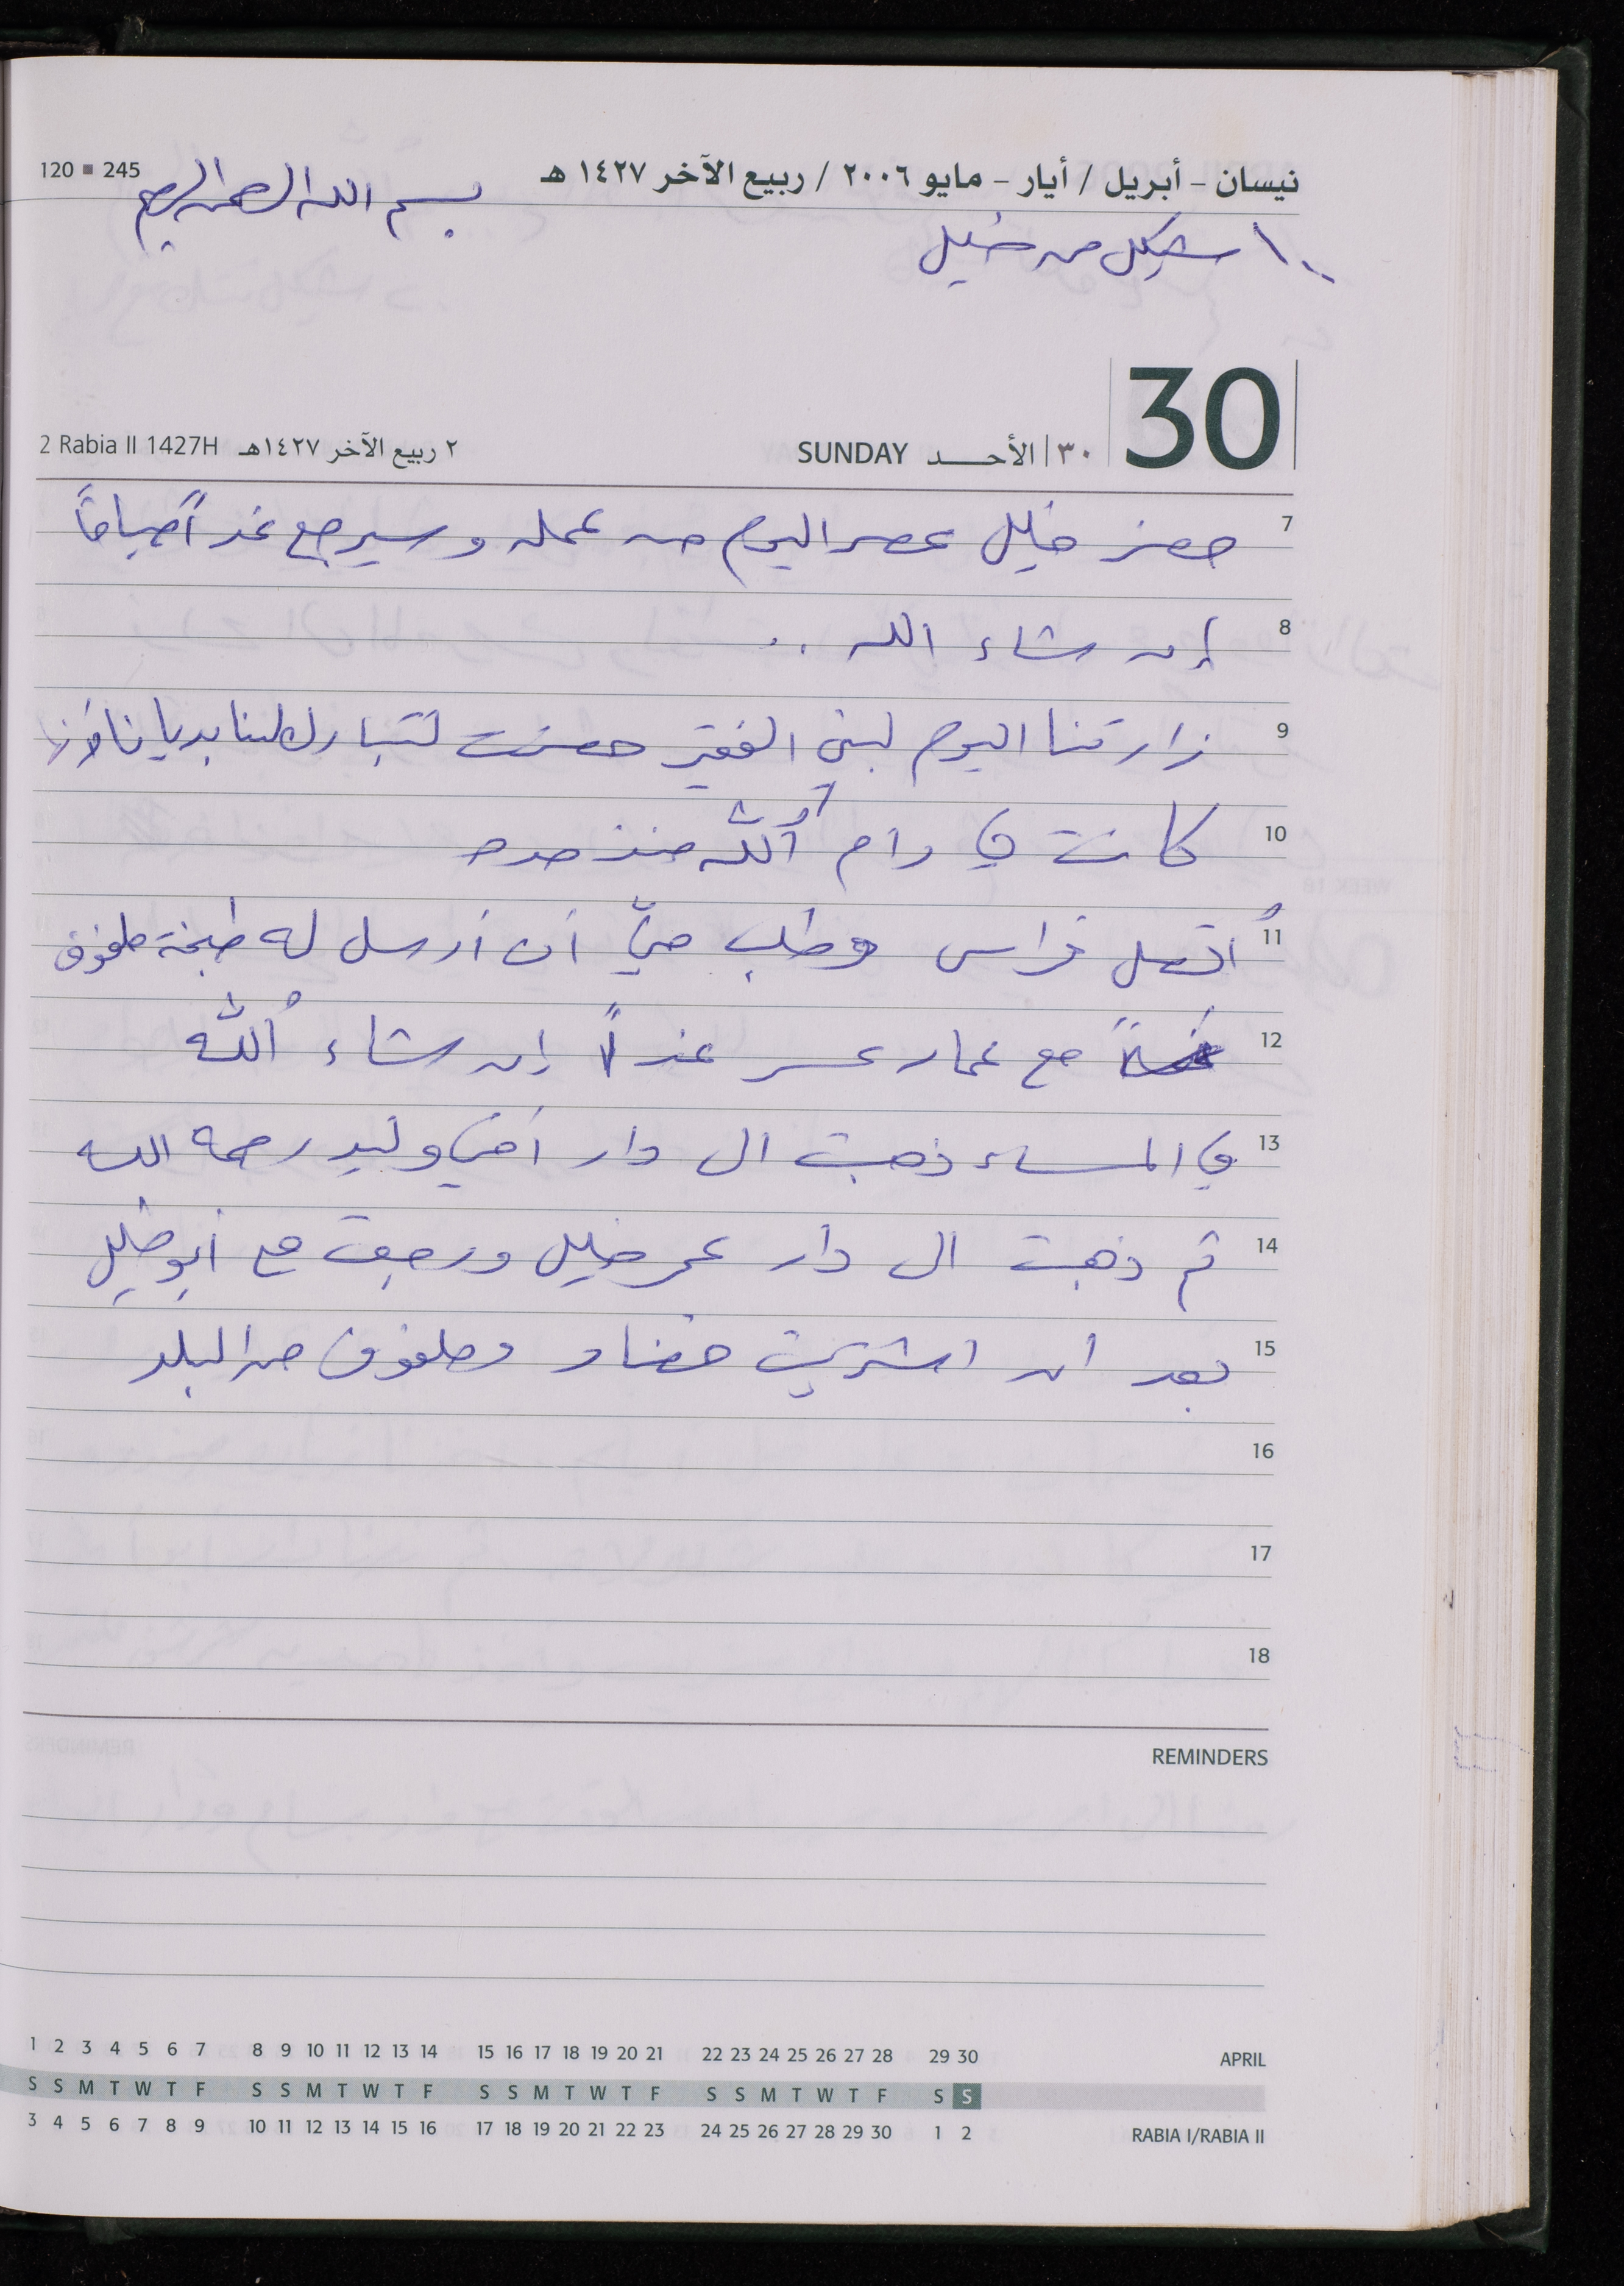 نيسان - أبريل / أيار - مايو ٢٠٠٦ / ربيع الآخر ١٤٢٧ هـ
120 ▪ 245
بسم الله الرحمن الرحيم
١٠٠ شيكل من خليل
30
٣٠ | الأحد SUNDAY
٢ ربيع الآخر ١٤٢٧هـ 2 Rabia II 1427H
7 حضر خليل عصر اليوم من عمله وسيرجع غداً صباحاً
8 إن شاء الله ..
9 زارتنا اليوم لبنى الفقير حضرت لتبارك لينا بديانا
10 كانت في رام ألله منذ مده
11 أتصل فراس وطلب مني أن أرسل له طبخة ملفوف
12 مع عمار عسر غداً إن شاء ألله
13 في المساء ذهبت الى دار أخي وليد رحمه الله
14 ثم ذهبت الى دار عمر خليل ورجعت مع أبو خليل
15 بعد ان اشتريت خضار وملفوف من البلد
16
17
18
REMINDERS
1 2 3 4 5 6 7 8 9 10 11 12 13 14 15 16 17 18 19 20 21 22 23 24 25 26 27 28 29 30 APRIL
S S M T W T F S S M T W T F S S M T W T F S S M T W T F S S
3 4 5 6 7 8 9 10 11 12 13 14 15 16 17 18 19 20 21 22 23 24 25 26 27 28 29 30 1 2 RABIA I/RABIA II